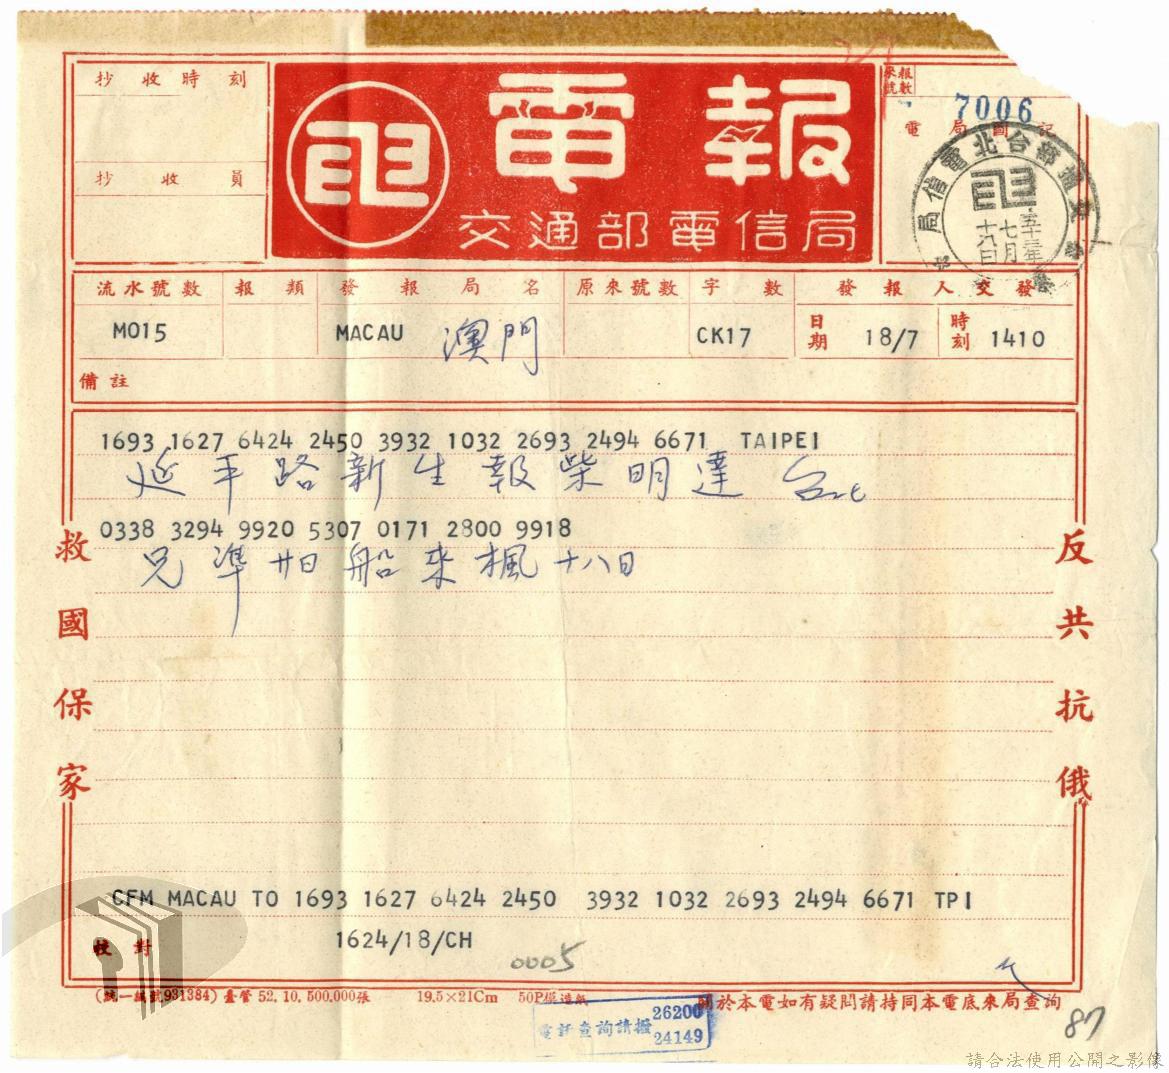 抄收時刻
抄收員
電報
交通部電信局
來報號數
7006
電局國記
交通部台北電信局
五十三年
七月
十八日
流水號數 報類 發報局名 原來號數 字數 發報人交發
MO15 MACAU 澳門 CK17 日期 18/7 時刻 1410
備註
1693 1627 6424 2450 3932 1032 2693 2494 6671 TAIPEI
延平路新生報柴明達 台北
0338 3294 9920 5307 0171 2800 9918
兄準廿日船來楓十八日
救國保家
反共抗俄
CFM MACAU TO 1693 1627 6424 2450 3932 1032 2693 2494 6671 TPI
校對
1624/18/CH
0005
(統一編號931384) 臺管 52.10.500,000張 19.5×21Cm 50P模造紙
關於本電如有疑問請持同本電底來局查詢
電話查詢請撥 26200
24149
87
請合法使用公開之影像